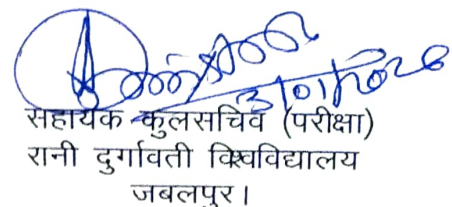 3/01/2026
सहायक कुलसचिव (परीक्षा)
रानी दुर्गावती विश्वविद्यालय
जबलपुर।